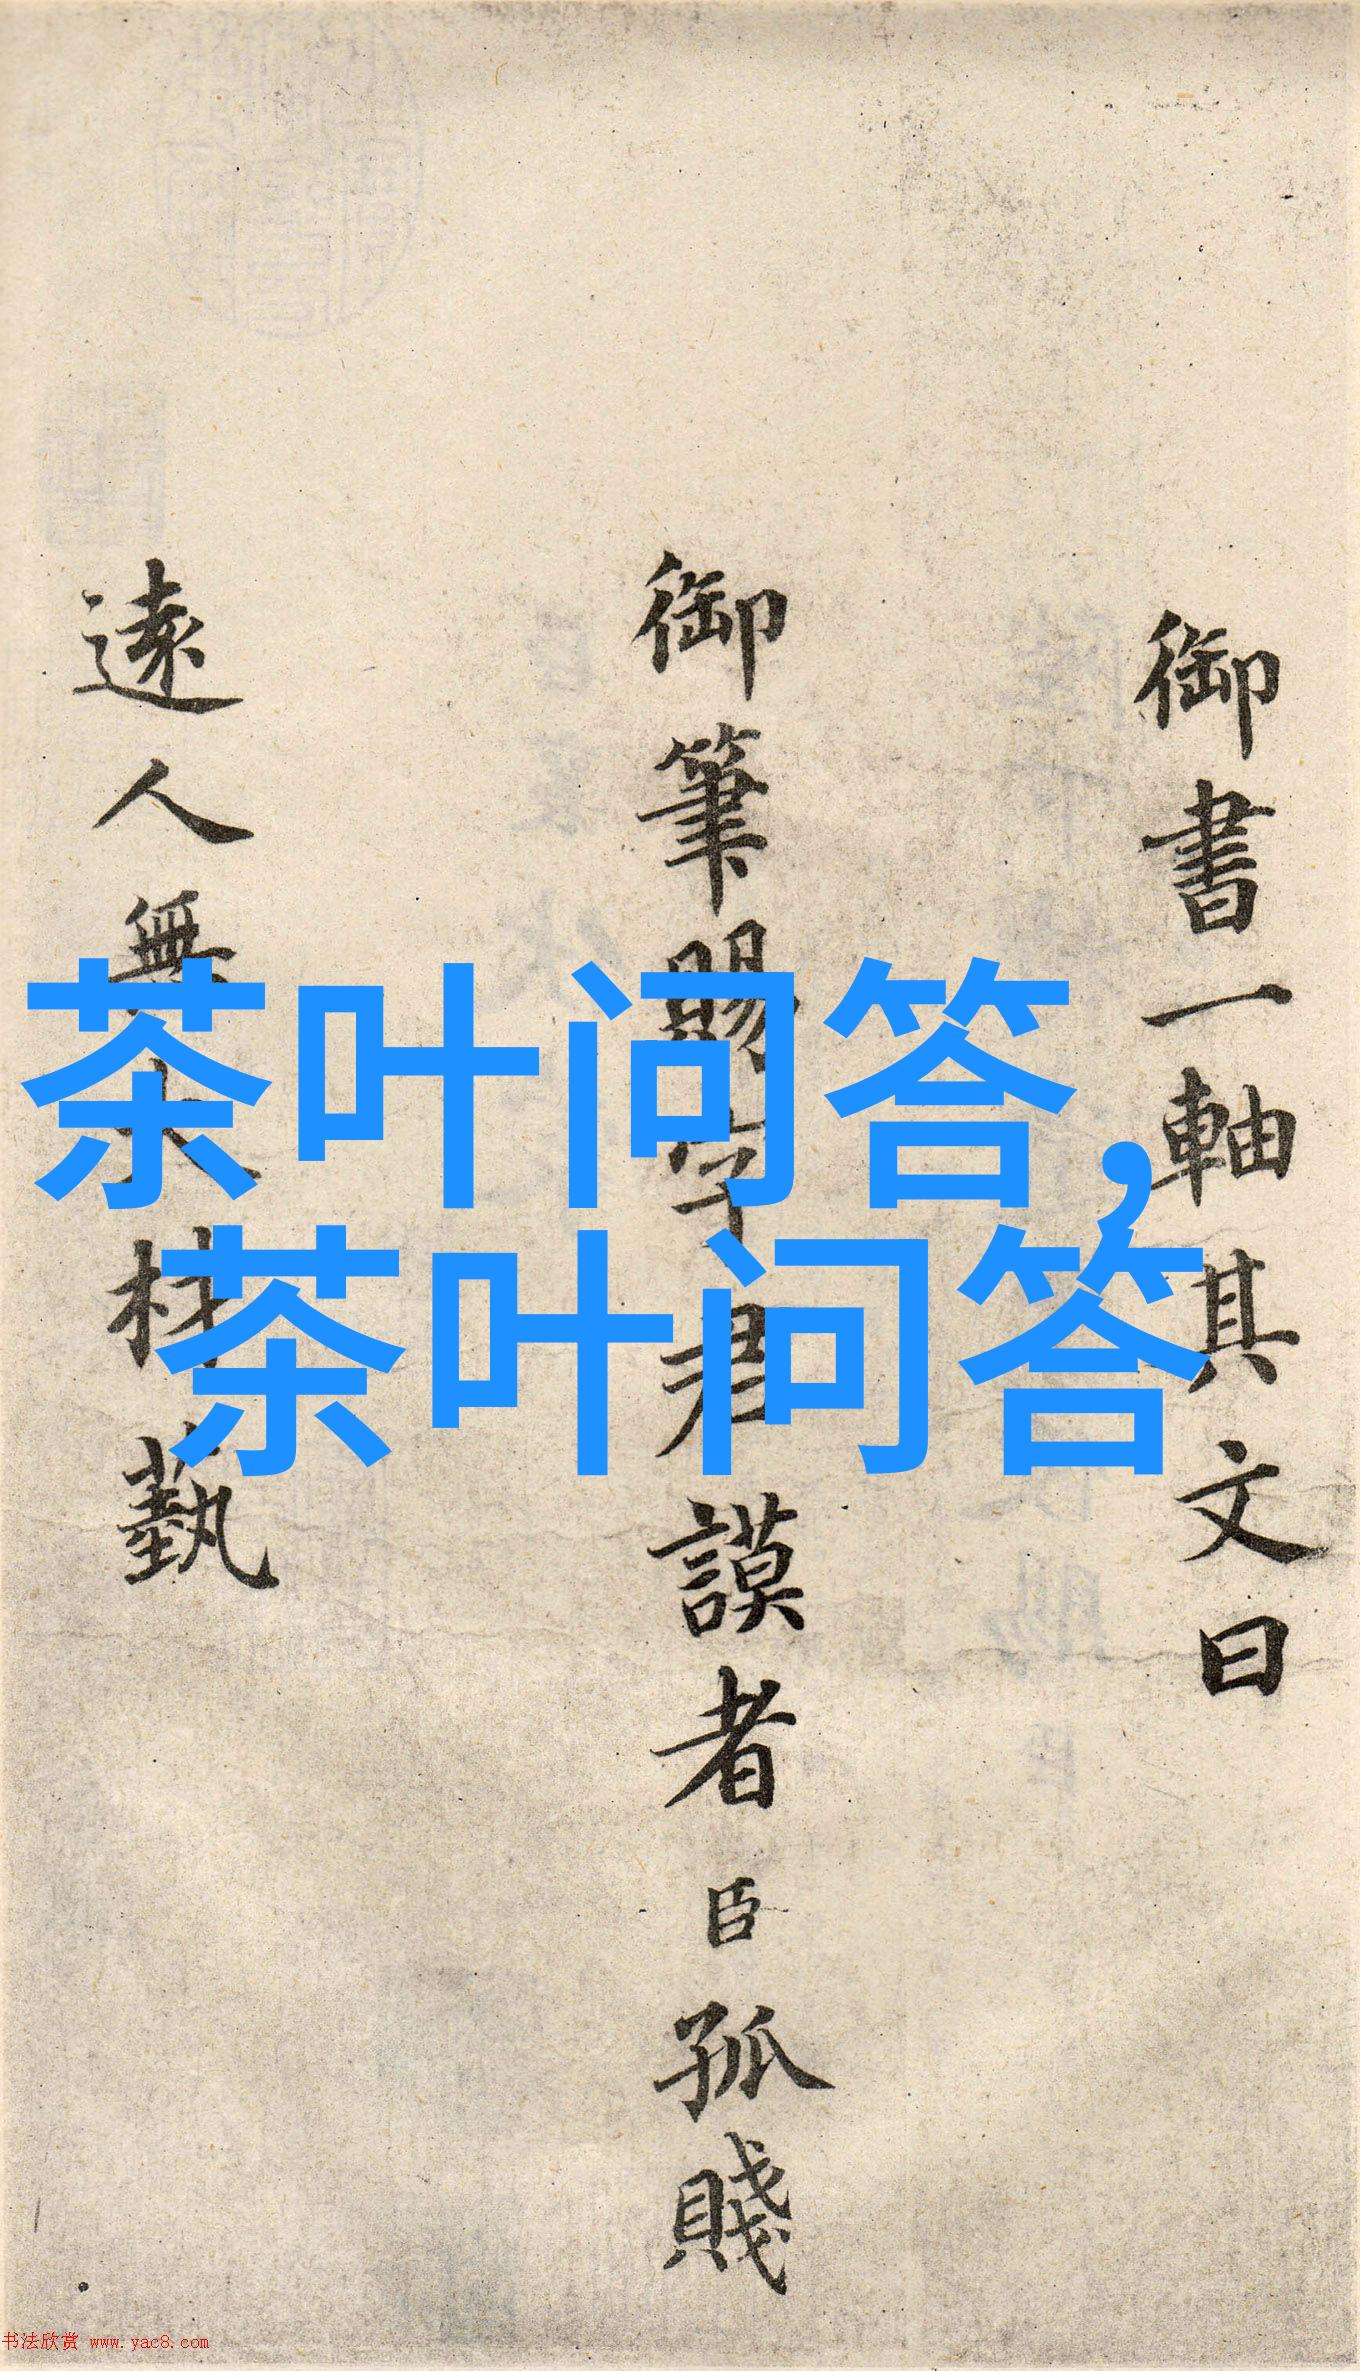 御書一軸其文曰
御筆賜字君謨者臣孤賤
遠人無大材藝
茶叶问答,
茶叶问答
书法欣赏 www.yac8.com